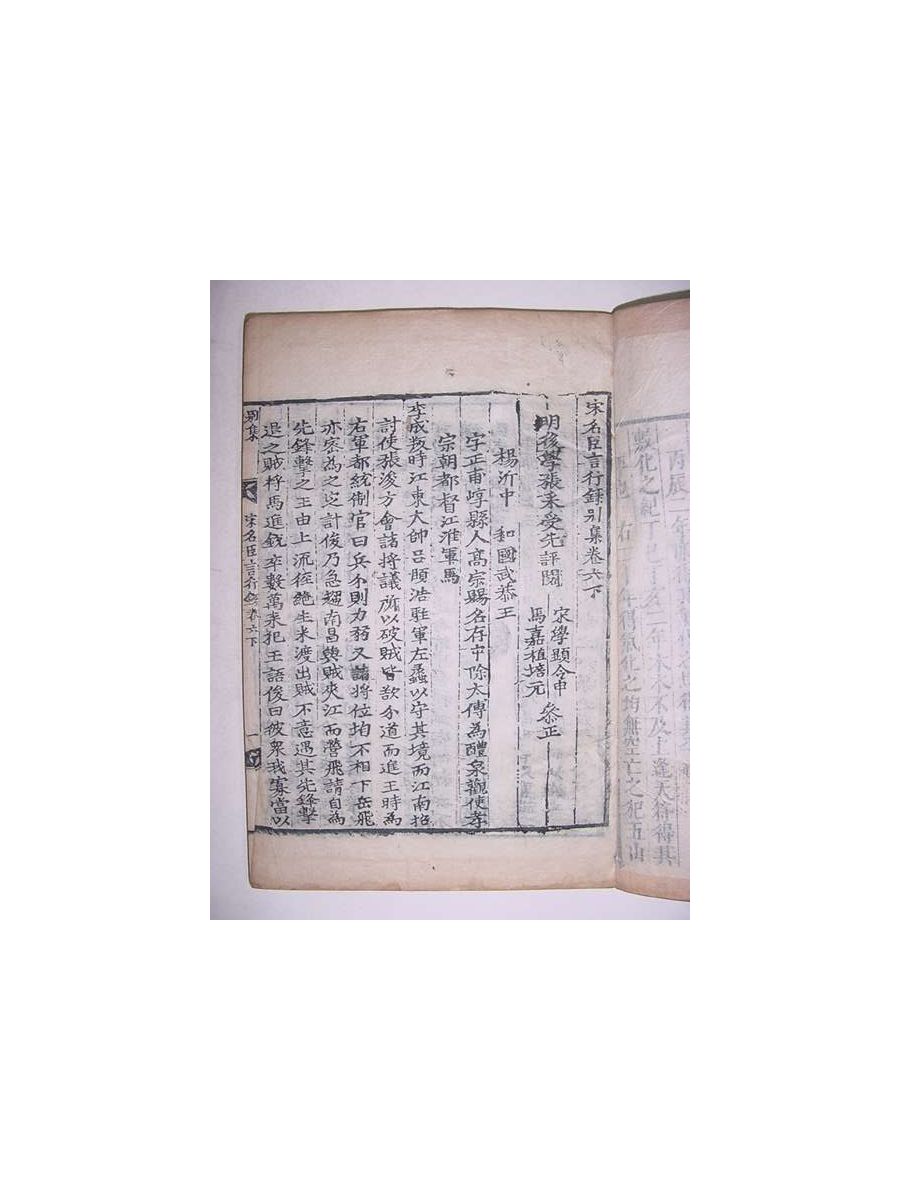 宋名臣言行錄别集卷六下
明後學張采受先評閱
宋學顯令申
馬嘉植培元
叅正
楊沂中 和國武恭王
字正甫崞縣人高宗賜名存中除太傅為醴泉觀使孝
宗朝都督江淮軍馬
李成叛時江東大帥吕頤浩駐軍左蠡以守其境而江南招
討使張浚方會諸將議所以破賊皆欲分道而進王時為
右軍都統制官曰兵分則力弱又諸將位均不相下岳飛
亦密為之计俊乃急趨南昌與賊夾江而營飛請自為
先鋒擊之王由上流徑絶生米渡出賊不意遇其先鋒擊
退之賊將馬進銳卒數萬来犯王語俊曰彼衆我寡當以
别集
宋名臣言行錄卷六下